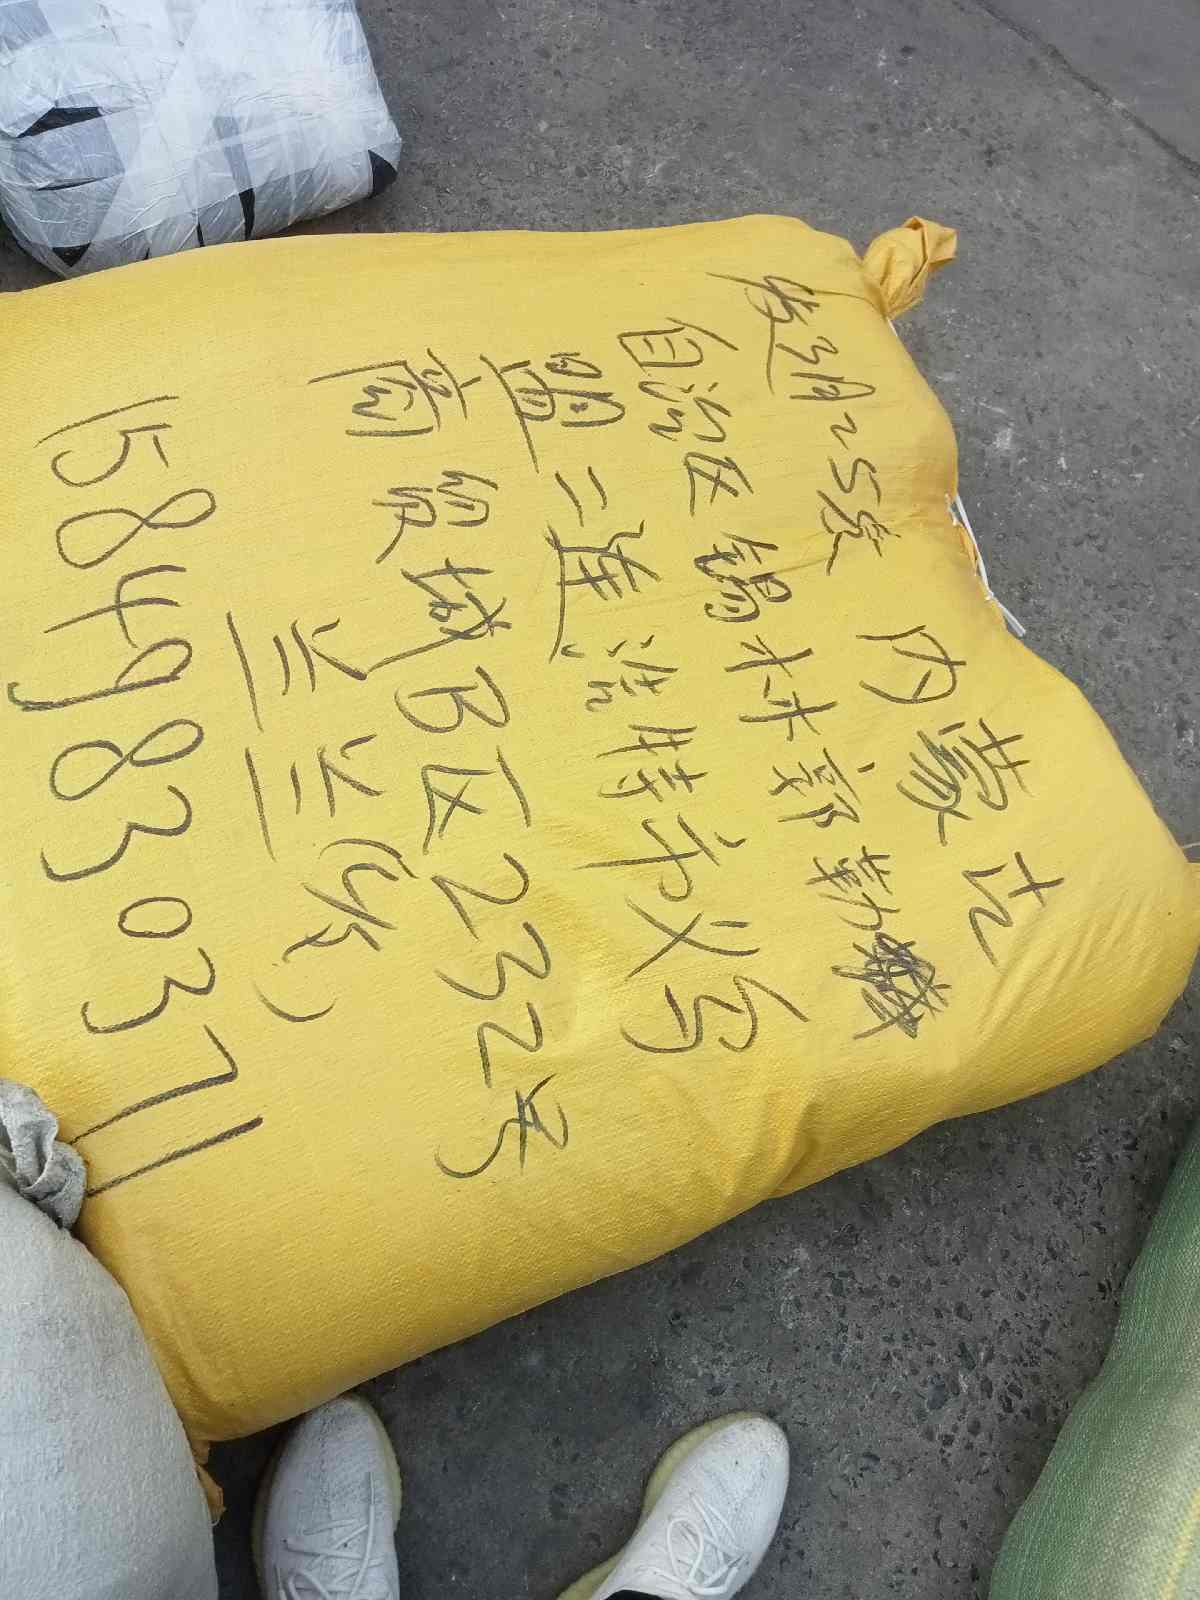 发3月25发 内蒙古
自治区锡林郭勒
盟二连浩特市义乌
商贸城B区232号
兰兰
15849830371